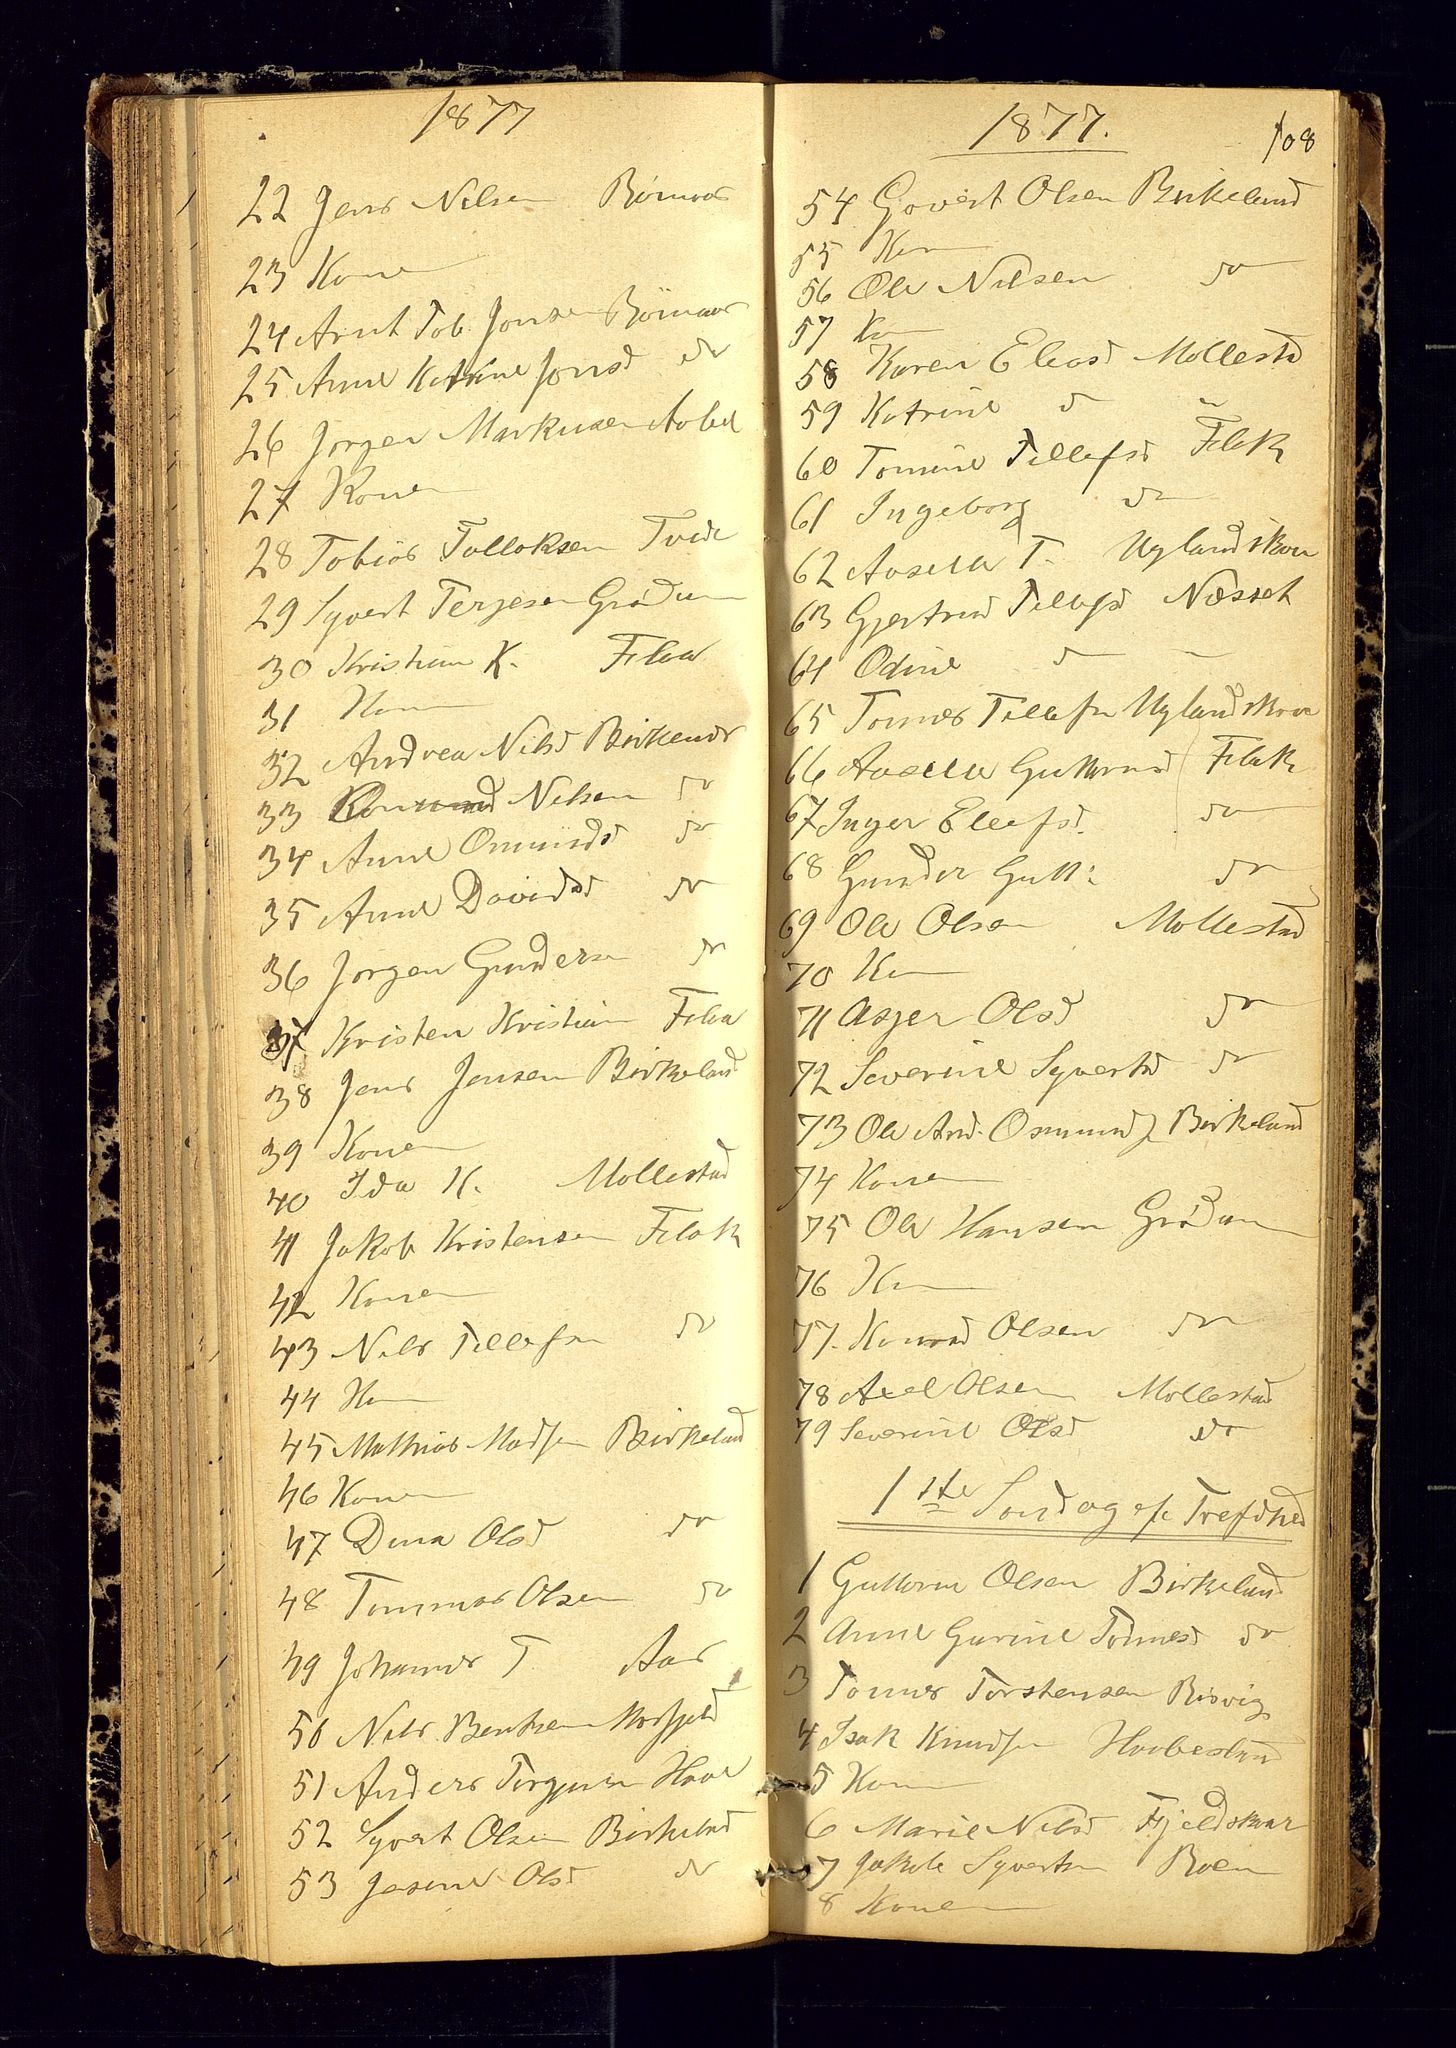 1877
22 Jens Nilsen
23 Konen
24 Arnt Tob. Jonsen
25 Anne Katrine Jonsd do
26 Jorgen Markusen
27 Konen
28 Tobias Tolloksen Tvede
29 Syvert Terjesen Grødum
30 Kristian K. Flaa
31 Kon
32 Andrea Nilsd
33 Nilsen do
34 Anne Omunds do
35 Anne Davidsd do
36 Jorgen Gundersn do
37 Kristen Kristian Flaa
38 Jens Jensen Birkeland
39 Konen
40 Ida K. Mollestad
41 Jakob Kristensen Flak
42 Konen
43 Nils Tellefsn do
44 Kn
45 Mathias Madsn Birkeland
46 Konen
47 Dina Olsd do
48 Tommas Olsen do
49 Johannes T. Aas
50 Nils Bentsen
51 Anders Torgjusen
52 Syvert Olsen Birkeland
53 Josine Olsd do
1877. 108
54 Govert Olsen Birkeland
55 Kon
56 Ole Nilsen do
57 Kn
58 Karen Eleasd Mollestd
59 Katrine d "
60 Tomine Tellefsd Flak
61 Ingeborg do
62 Aasela T. Uglandskou
63 Gjertrud Tellefsd Næsset
64 Odine d –
65 Tonnes Tellefsn Uglandskou
66 Aasela Guttormsd Flak
67 Inger Ellefsd. do
68 Gunder Gutt: do
69 Ole Olsen Mollestad
70 Kn
71 Asjer Olsd do
72 Severine Syvertsd do
73 Ole And. Osmunds Birkeland
74 Konen
75 Ole Hansen Grødum
76 Kn
77. Konrad Olsen do
78 Axel Olsen Mollestad
79 Severine Olsd do
1ste Søndag ef Trefdhed
1 Guttorm Olsen Birkeland
2 Anne Gurine Tonnesd do
3 Tonnes Torstensen Risvig
4 Isak Knudsn Haabestad
5 Kon
6 Marie Nilsd Fjeldskaar
7 Jakob Syvertsn Roen
8 Konen